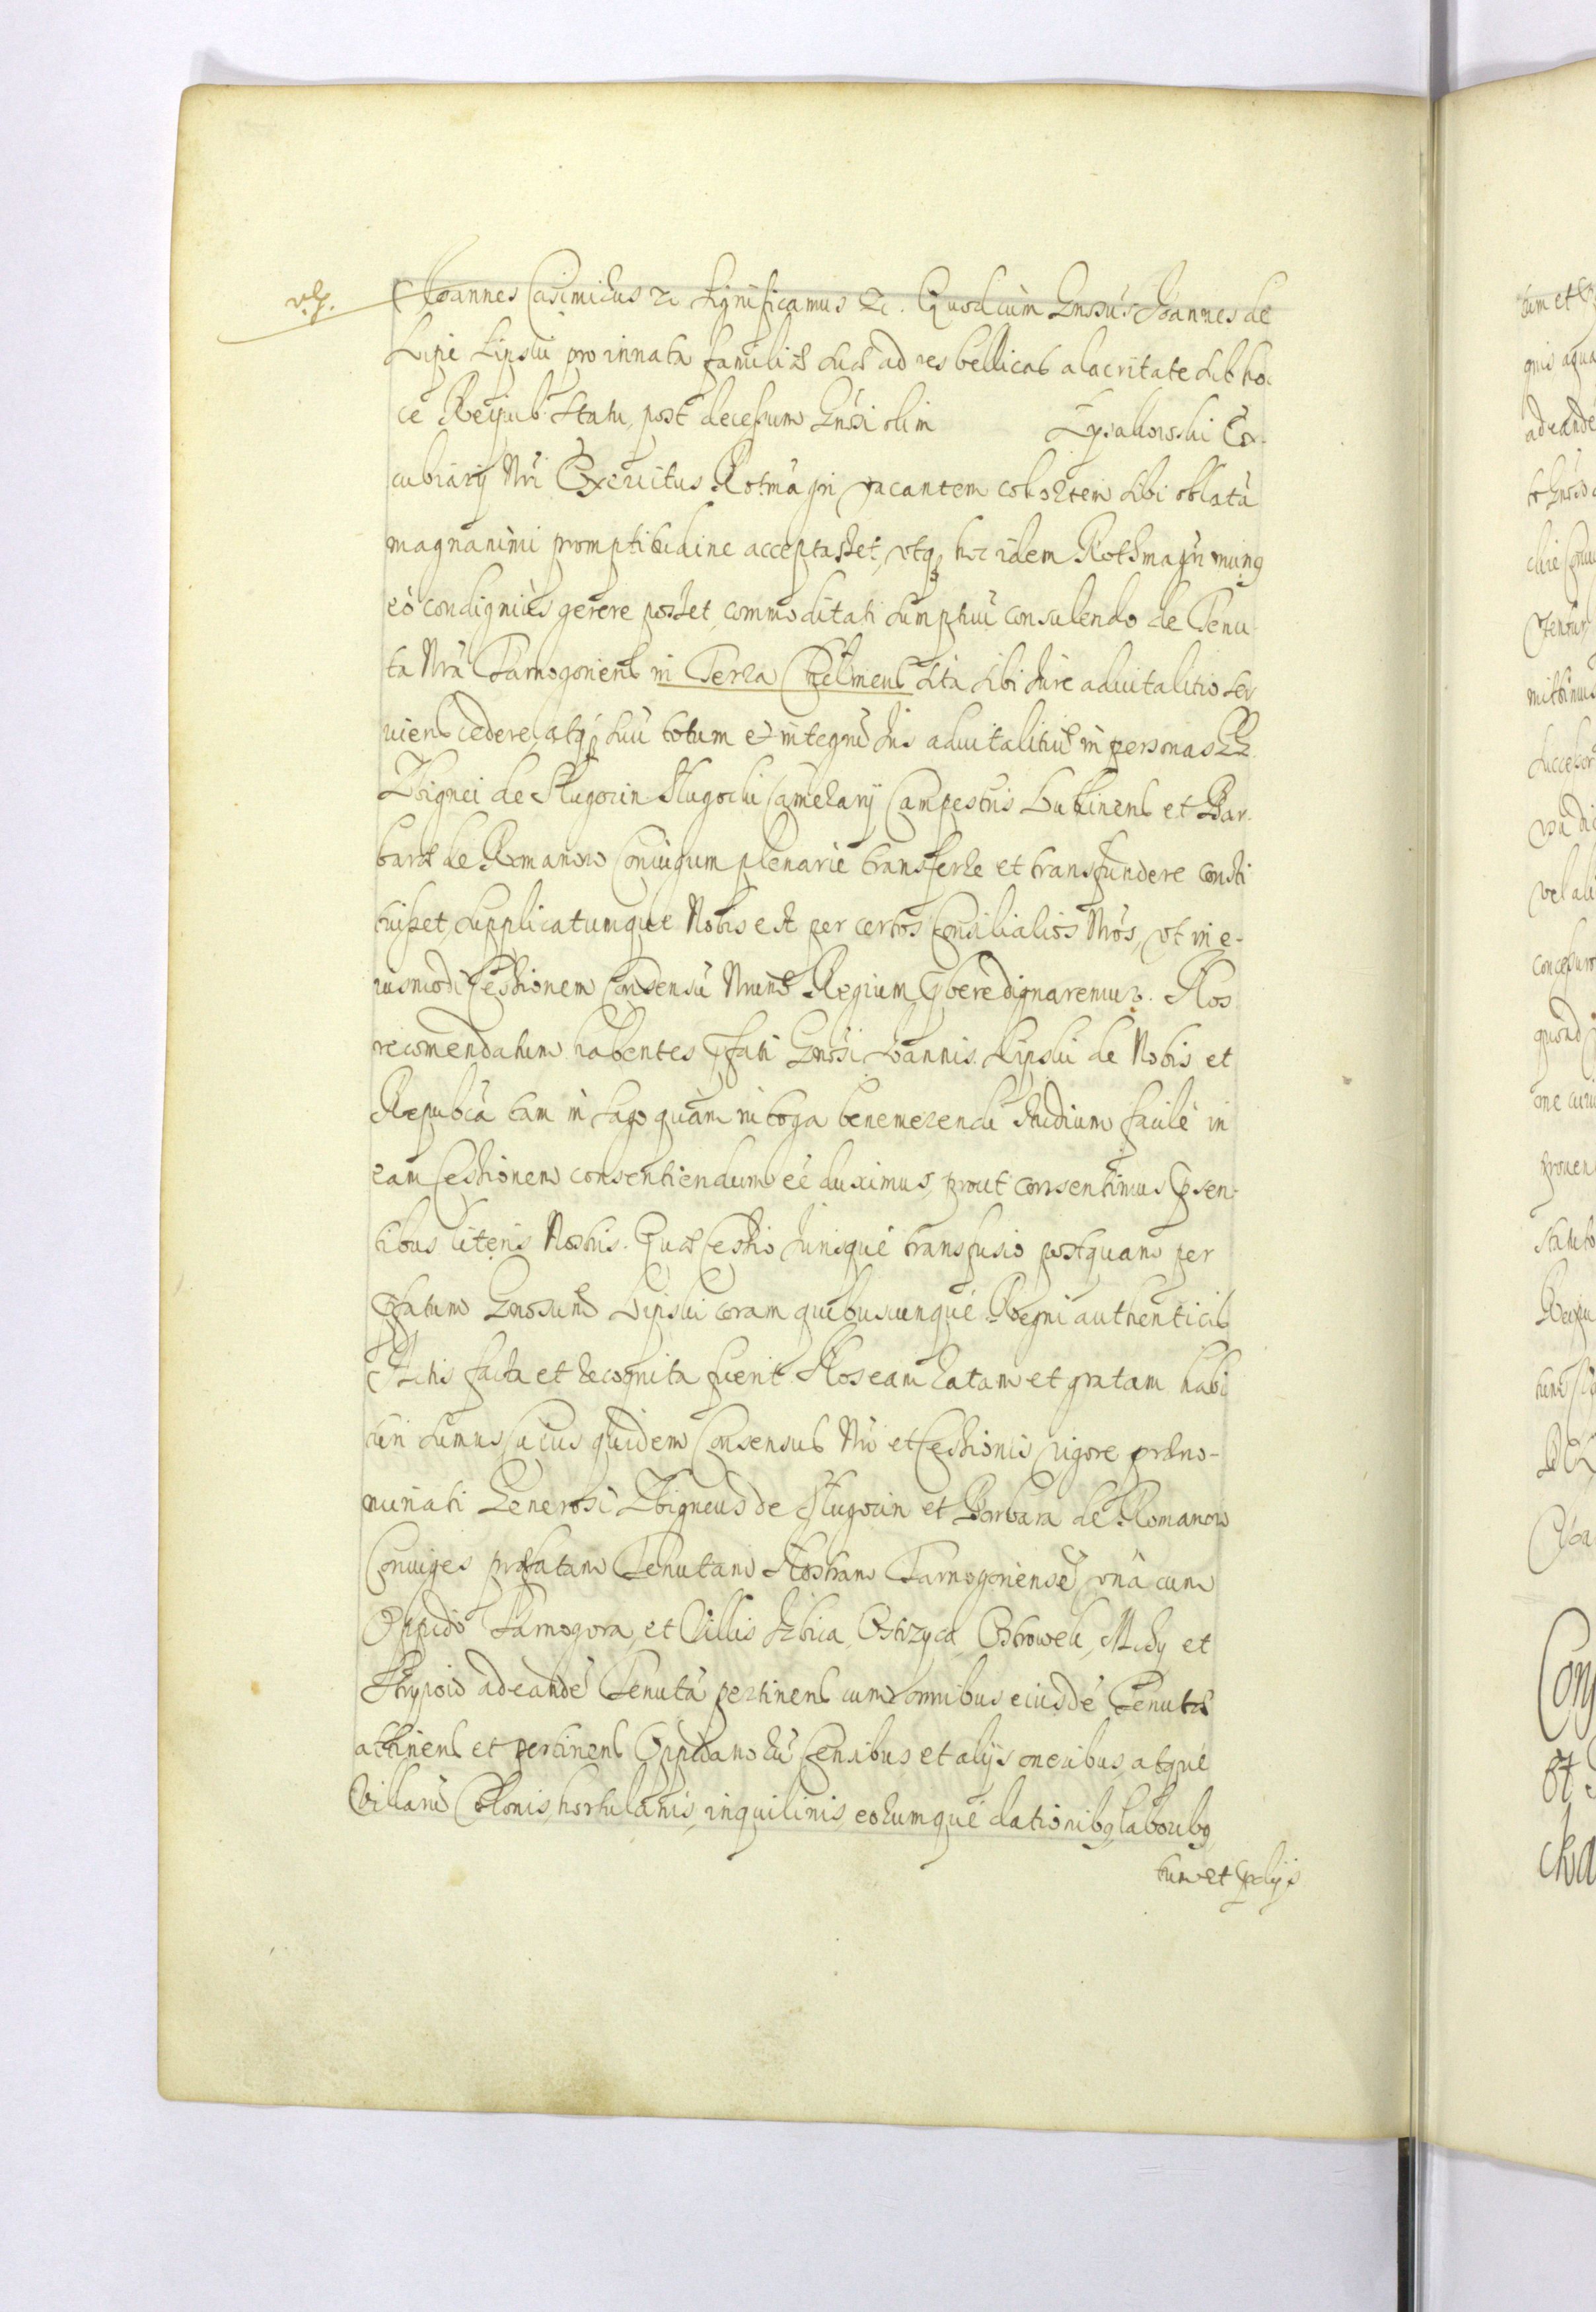 Joannes Casimirus etc Significamus etc. Quod cùm Gnosus Joannes de
Lipie Lipski pro innata familiæ suæ ad res bellicas alacritate sub ho-
ce Reipub. statu, post decessum Gnosi olim Łysakowski Ex-
cubiarij Nri Exercitus Rotmagri vacantem cohortem sibi oblatã
magnanimi promptitudine acceptasset, utq hoc idem Rothmagri munq
eò condigniùs gerere posset, commoditati sumptuũ consulendo de Tenu-
ta Nrã Tarnogoriens in Terra Chelmens sita sibi Jure aduitalitio ser
uiens cedere, atq suũ totum et integrũ Jus aduitalitiũ in personas GG.
Zbignei de Sługocin Sługocki Camerarij Campestris Lublinens et Bar-
baræ de Romanow Coniugum plenarie transferre et transfundere consti
tuisset, supplicatumque Nobis est per certos Consiliarios Nros, vt in e-
iusmodi Cessionem Consensũ Nrum Regium pbere dignaremur. Nos
recomendatum habentes pfati Gnosi Joannis Lipski de Nobis et
Republicã tam in sago quàm in toga benemerendi studium facilè in
eam Cessionem consentiendum eẽ duximus, prout consentimus psen-
tibus literis Nostris. Quæ Cessio Jurisque transfusio postquam per
pfatum Gnosum Lipski coram quibuscunque Regni authenticis
Actis facta et recognita fuerit Nos eam ratam et gratam habi
turi sumus Cuius quidem Consensus Nri et Cessionis vigore præno-
minati Generosi Zbigneus de Sługocin et Barbara de Romanow
Coniuges præfatam Tenutam Nostram Tarnogoriensẽ, vnà cum
Oppido Tarnogora, et Villis Izbica, Ostrzyca, Ostrowek, Mchy et
Skrypow ad eandẽ Tenutã pertinens cum omnibus eiusdẽ Tenutæ
attinens et pertinens Oppidanorũ Censibus et alijs oneribus, atque
Villarũ Colonis, hortulanis, inquilinis, eorumque dationibq laboribq
tum et pdijs